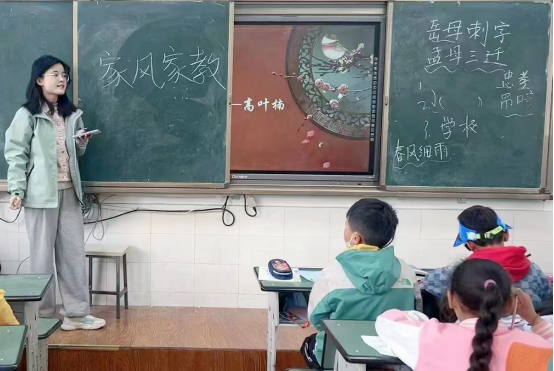 家风家教
高叶楠
岳母刺字
孟母三迁
忠
1.
2.
3.学校
春风细雨